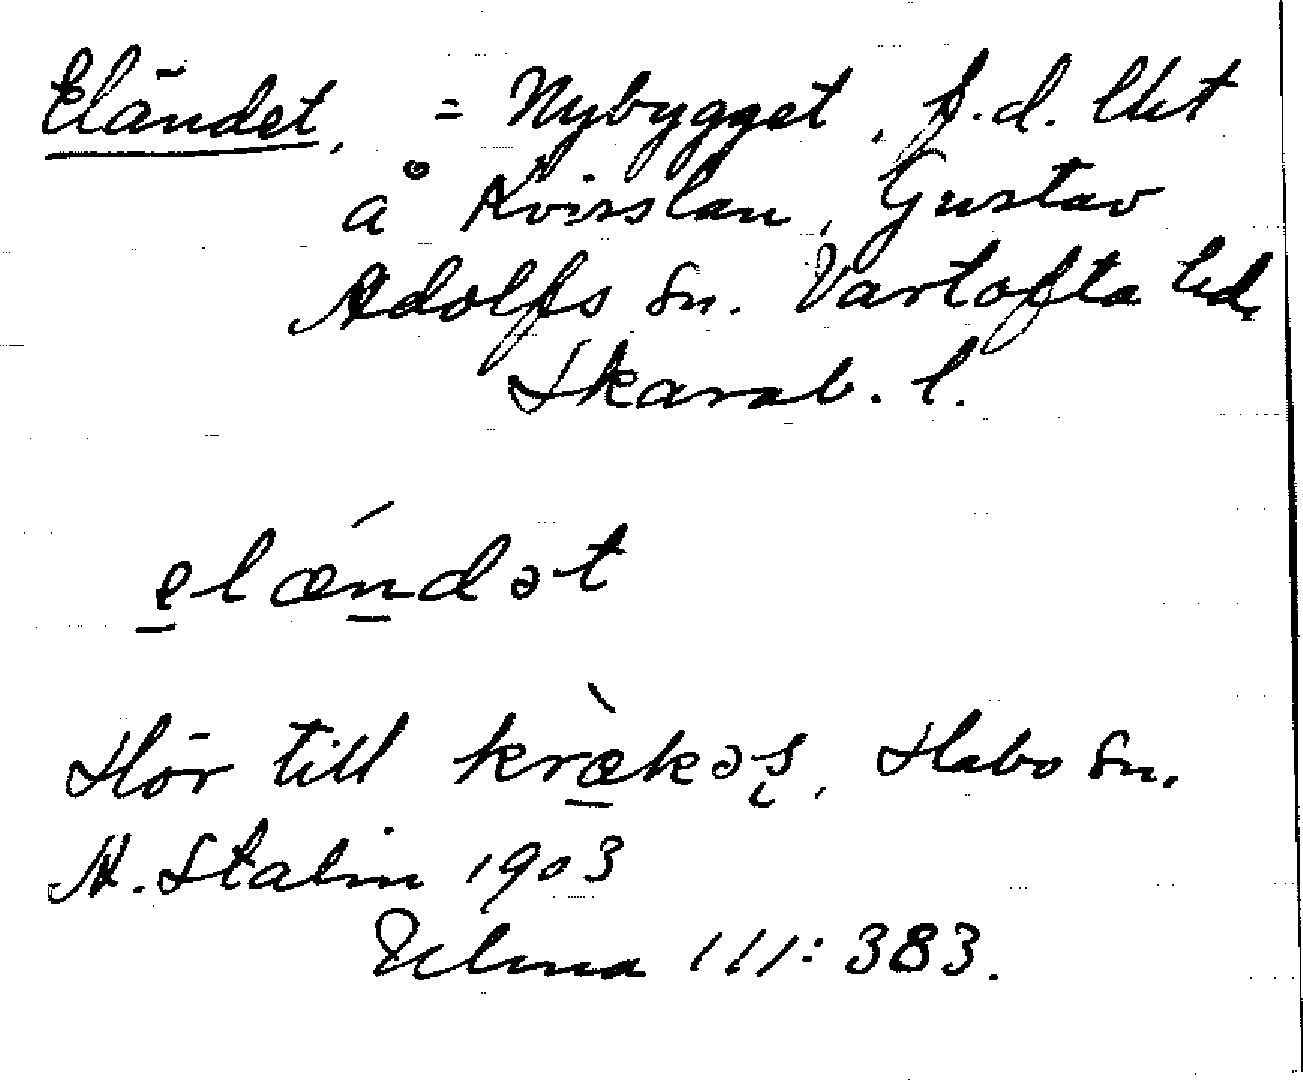 Eländet, = Nybygget, f.d. lht
å Kvisslan, Gustav
Adolfs sn. Vartofta hd,
Skarab. l.
elǽndət
Hör till krækəş, Habo sn.
A. Stalin 1903
Ulma 111:383.